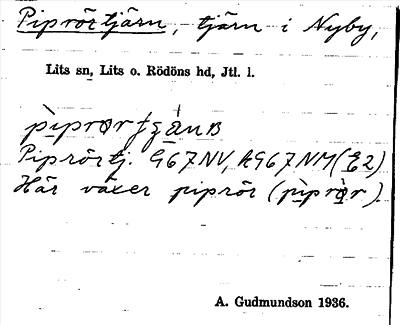 Piprörtjärn, tjärn i Nyby,
Lits sn, Lits o. Rödöns hd, Jtl. l.
Piprörtj. G67NV, AG67NM(E2)
Här växer piprör (pìprø̀r).
A. Gudmundson 1936.